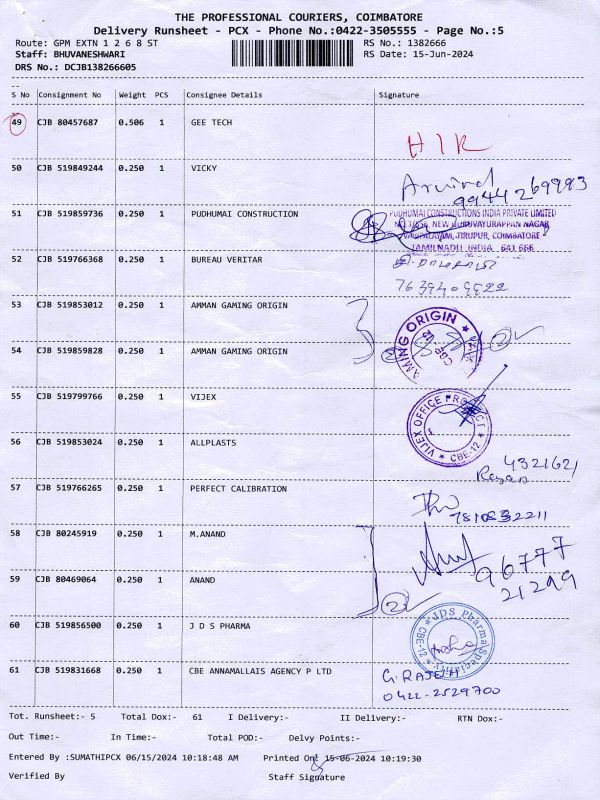 THE PROFESSIONAL COURIERS, COIMBATORE
Delivery Runsheet - PCX - Phone No.:0422-3505555 - Page No.:5
Route: GPM EXTN 1 2 6 8 ST RS No.: 1382666
Staff: BHUVANESHWARI RS Date: 15-Jun-2024
DRS No.: DCJB138266605
S No Consignment No Weight PCS Consignee Details Signature
49 CJB 80457687 0.506 1 GEE TECH
HIR
50 CJB 519849244 0.250 1 VICKY
Arvind
9944269993
51 CJB 519859736 0.250 1 PUDHUMAI CONSTRUCTION
PUDHUMAI CONSTRUCTIONS INDIA PRIVATE LIMITED
NEW GURUVAYURAPPAN NAGAR
TIRUPUR, COIMBATORE
TAMILNADU INDIA 641 666
52 CJB 519766368 0.250 1 BUREAU VERITAR
53 CJB 519853012 0.250 1 AMMAN GAMING ORIGIN
AMING ORIGIN
CBE-12
54 CJB 519859828 0.250 1 AMMAN GAMING ORIGIN
55 CJB 519799766 0.250 1 VIJEX
VIJEX OFFICE PRODUCT
CBE-12
56 CJB 519853024 0.250 1 ALLPLASTS
4321621
57 CJB 519766265 0.250 1 PERFECT CALIBRATION
7810832211
58 CJB 80245919 0.250 1 M.ANAND
96777
21299
59 CJB 80469064 0.250 1 ANAND
2
60 CJB 519856500 0.250 1 J D S PHARMA
JDS Pharma Speciality
CBE-12
61 CJB 519831668 0.250 1 CBE ANNAMALLAIS AGENCY P LTD
G. RAJESH
0422-2529700
Tot. Runsheet:- 5 Total Dox:- 61 I Delivery:- II Delivery:- RTN Dox:-
Out Time:- In Time:- Total POD:- Delvy Points:-
Entered By :SUMATHIPCX 06/15/2024 10:18:48 AM Printed On: 15-06-2024 10:19:30
Verified By Staff Signature